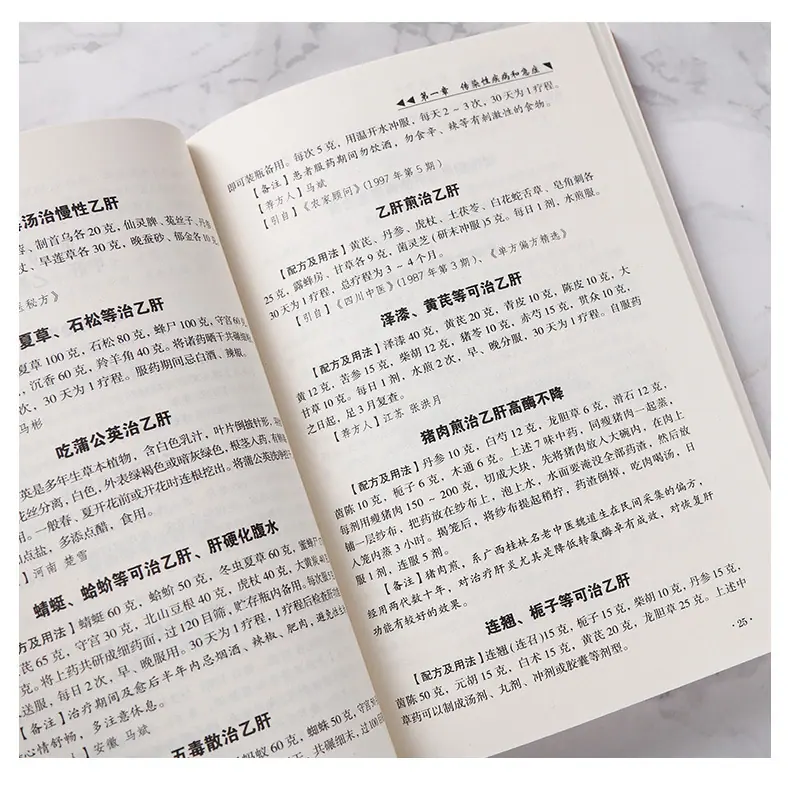 汤治慢性乙肝
、制首乌各20克，仙灵脾、菟丝子、丹参
、旱莲草各30克，晚蚕砂、郁金各10克
秘方》
夏草、石松等治乙肝
草100克，石松80克，蜂尸100克，守宫60克
，沉香60克，羚羊角40克。将诸药晒干共碾细
次，30天为1疗程。服药期间忌白酒、辣椒。
马彬
吃蒲公英治乙肝
英是多年生草本植物，含白色乳汁，叶片倒披针形，
丝分离，白色，外表绿褐色或暗灰绿色，根茎入药，有
。一般春、夏开花前或开花时连根挖出。将蒲公英洗净
点盐，多添点醋，食用。
】河南 楚雪
蜻蜓、蛤蚧等可治乙肝、肝硬化腹水
方及用法】蜻蜓60克，蛤蚧50克，冬虫夏草60克，蜜蜂
芪65克，守宫30克，北山豆根40克，虎杖40克，大黄
。将上药共研成细药面，过120目筛，贮存瓶内备用。每次服
送服，每日2次，早、晚服用。30天为1疗程，1疗程后检查
备注】治疗期间及愈后半年内忌烟酒、辣椒、肥肉，避免
心情舒畅，多注意休息。
】安徽 马斌
五毒散治乙肝
蚂蚁60克，蜘蛛50克，守宫
克，共碾细末，过100目
第一章 传染性疾病和急症
即可装瓶备用。每次5克，用温开水冲服，每天2～3次，30天为1疗程。
【备注】患者服药期间勿饮酒，勿食辛、辣等有刺激性的食物。
【荐方人】马斌
【引自】《农家顾问》(1997年第5期)
乙肝煎治乙肝
【配方及用法】黄芪、丹参、虎杖、土茯苓、白花蛇舌草、皂角刺各
25克，露蜂房、甘草各9克，菌灵芝(研末冲服)5克。每日1剂，水煎服。
30天为1疗程，总疗程为3～4个月。
【引自】《四川中医》(1987年第3期)、《单方偏方精选》
泽漆、黄芪等可治乙肝
【配方及用法】泽漆40克，黄芪20克，青皮10克，陈皮10克，大
黄12克，苦参15克，柴胡12克，猪苓10克，赤芍15克，贯众10克，
甘草10克。每日1剂，水煎2次，早、晚分服，30天为1疗程。自服药
之日起，足3月复查。
【荐方人】江苏 张洪月
猪肉煎治乙肝高酶不降
【配方及用法】丹参10克，白芍12克，龙胆草6克，滑石12克，
茵陈10克，栀子6克，木通6克。上述7味中药，同瘦猪肉一起蒸，
每剂用瘦猪肉150～200克，切成大块，先将猪肉放入大碗内，在肉上
铺一层纱布，把药放在纱布上，泡上水，水面要淹没全部药渣，然后放
入笼内蒸3小时。揭笼后，将纱布提起稍拧，药渣倒掉，吃肉喝汤，日
服1剂，连服5剂。
【备注】猪肉煎，系广西桂林名老中医魏道生在民间采集的偏方，
经用两代数十年，对治疗肝炎尤其是降低转氨酶卓有成效，对恢复肝
功能有较好的效果。
连翘、栀子等可治乙肝
【配方及用法】连翘(连召)15克，栀子15克，柴胡10克，丹参15克，
茵陈50克，元胡15克，白术15克，黄芪20克，龙胆草25克。上述中
草药可以制成汤剂、丸剂、冲剂或胶囊等剂型。
·25·